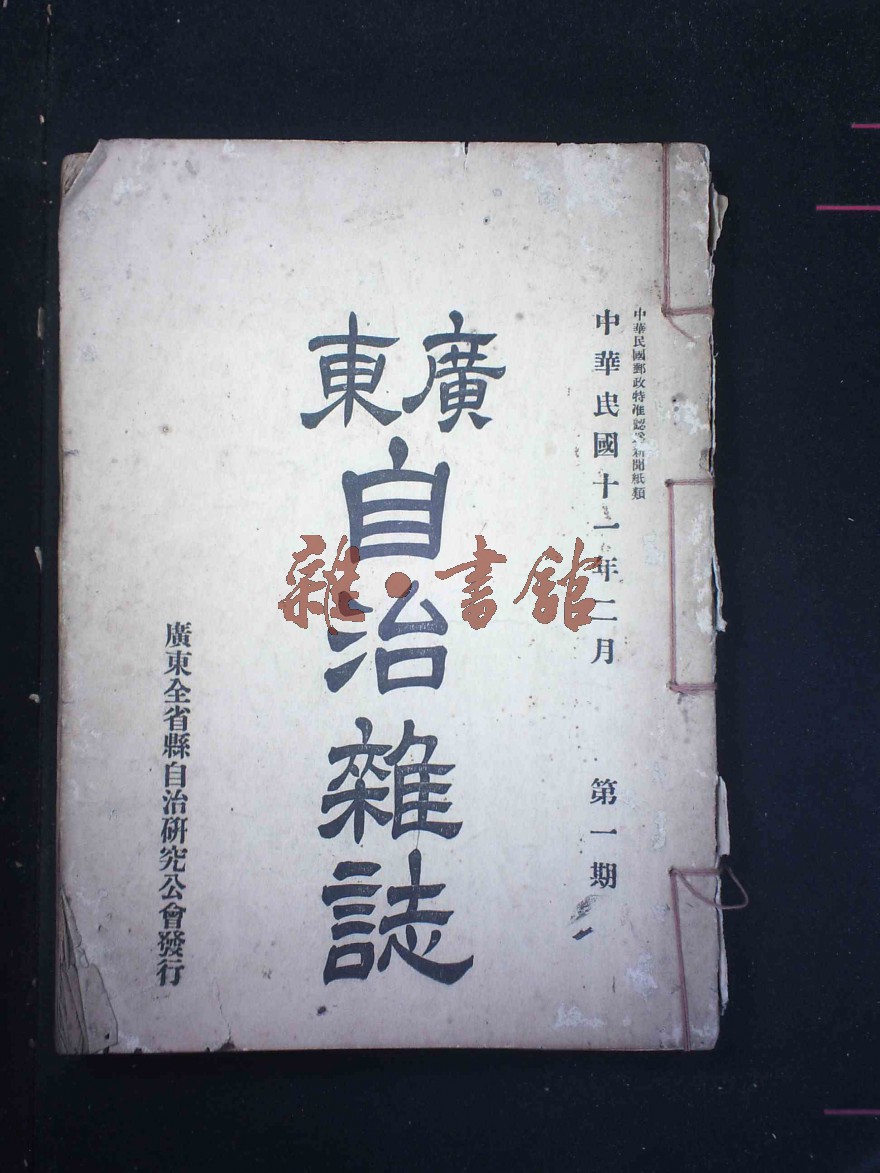 中華民國郵政特准認爲新聞紙類
中華民國十一年二月　第一期
廣東
自治雜誌
廣東全省縣自治研究公會發行
雜·書館